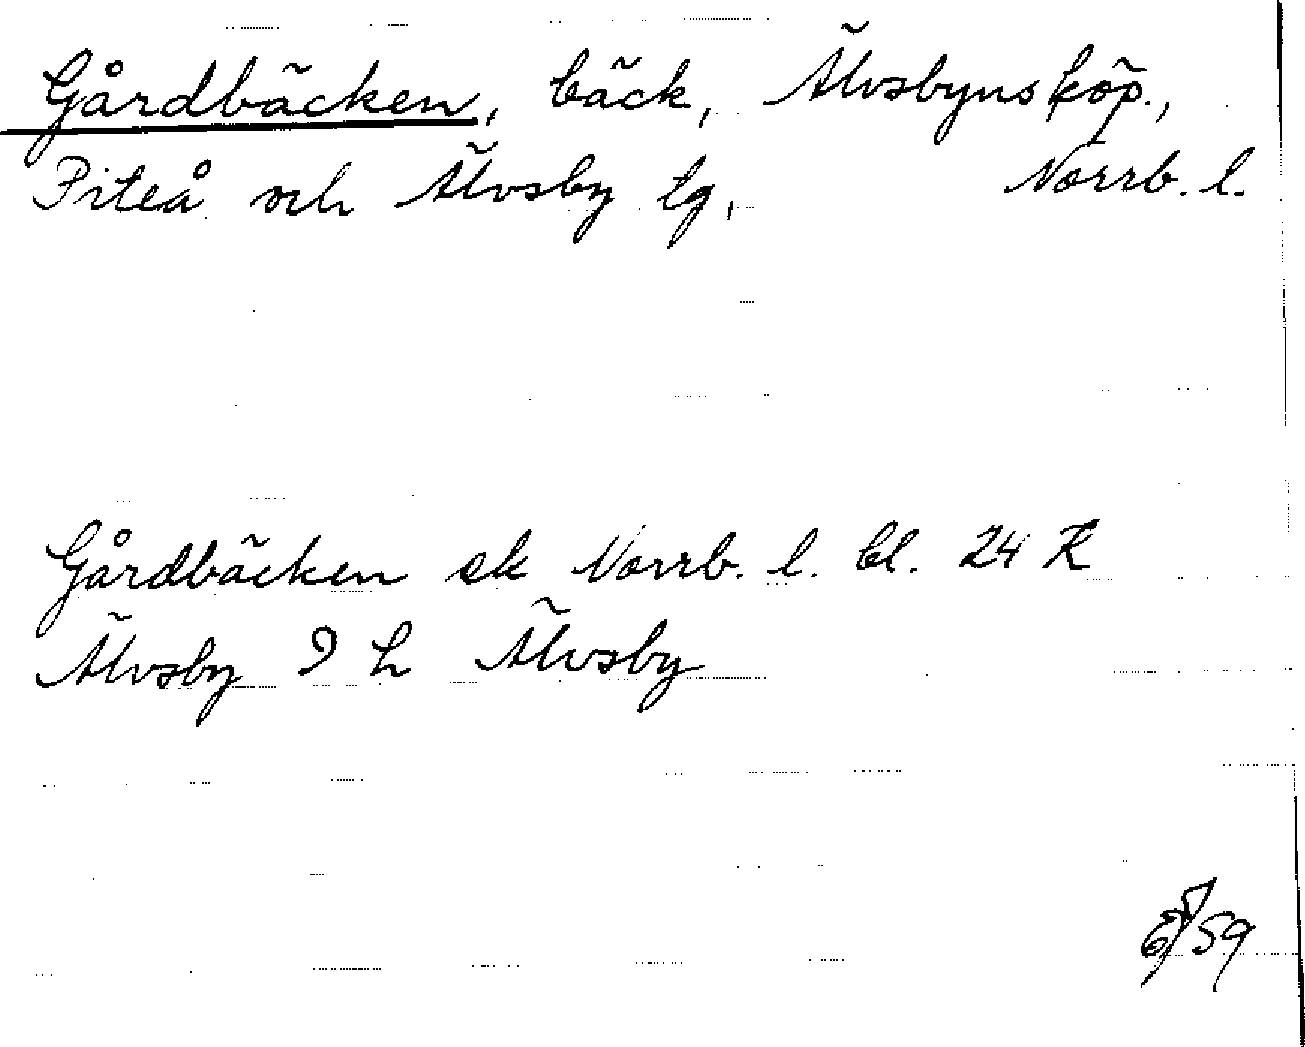 Gårdbäcken, bäck, Älvsbyns köp.,
Piteå och Älvsby tg, Norrb. l.
Gårdbäcken ek Norrb. l. bl. 24 K
Älvsby 9 h Älvsby
59